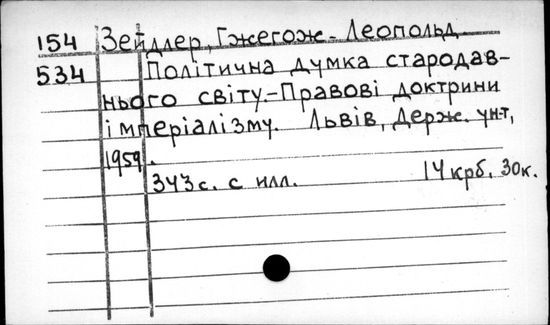 154 Зейдлер, Гжегож-Леопольд
534 Політична думка стародав-
нього світу.-Правові доктрини
імперіалізму. Львів, Держ. ун-т,
1959.
343 с. с илл. 14 крб. 30к.